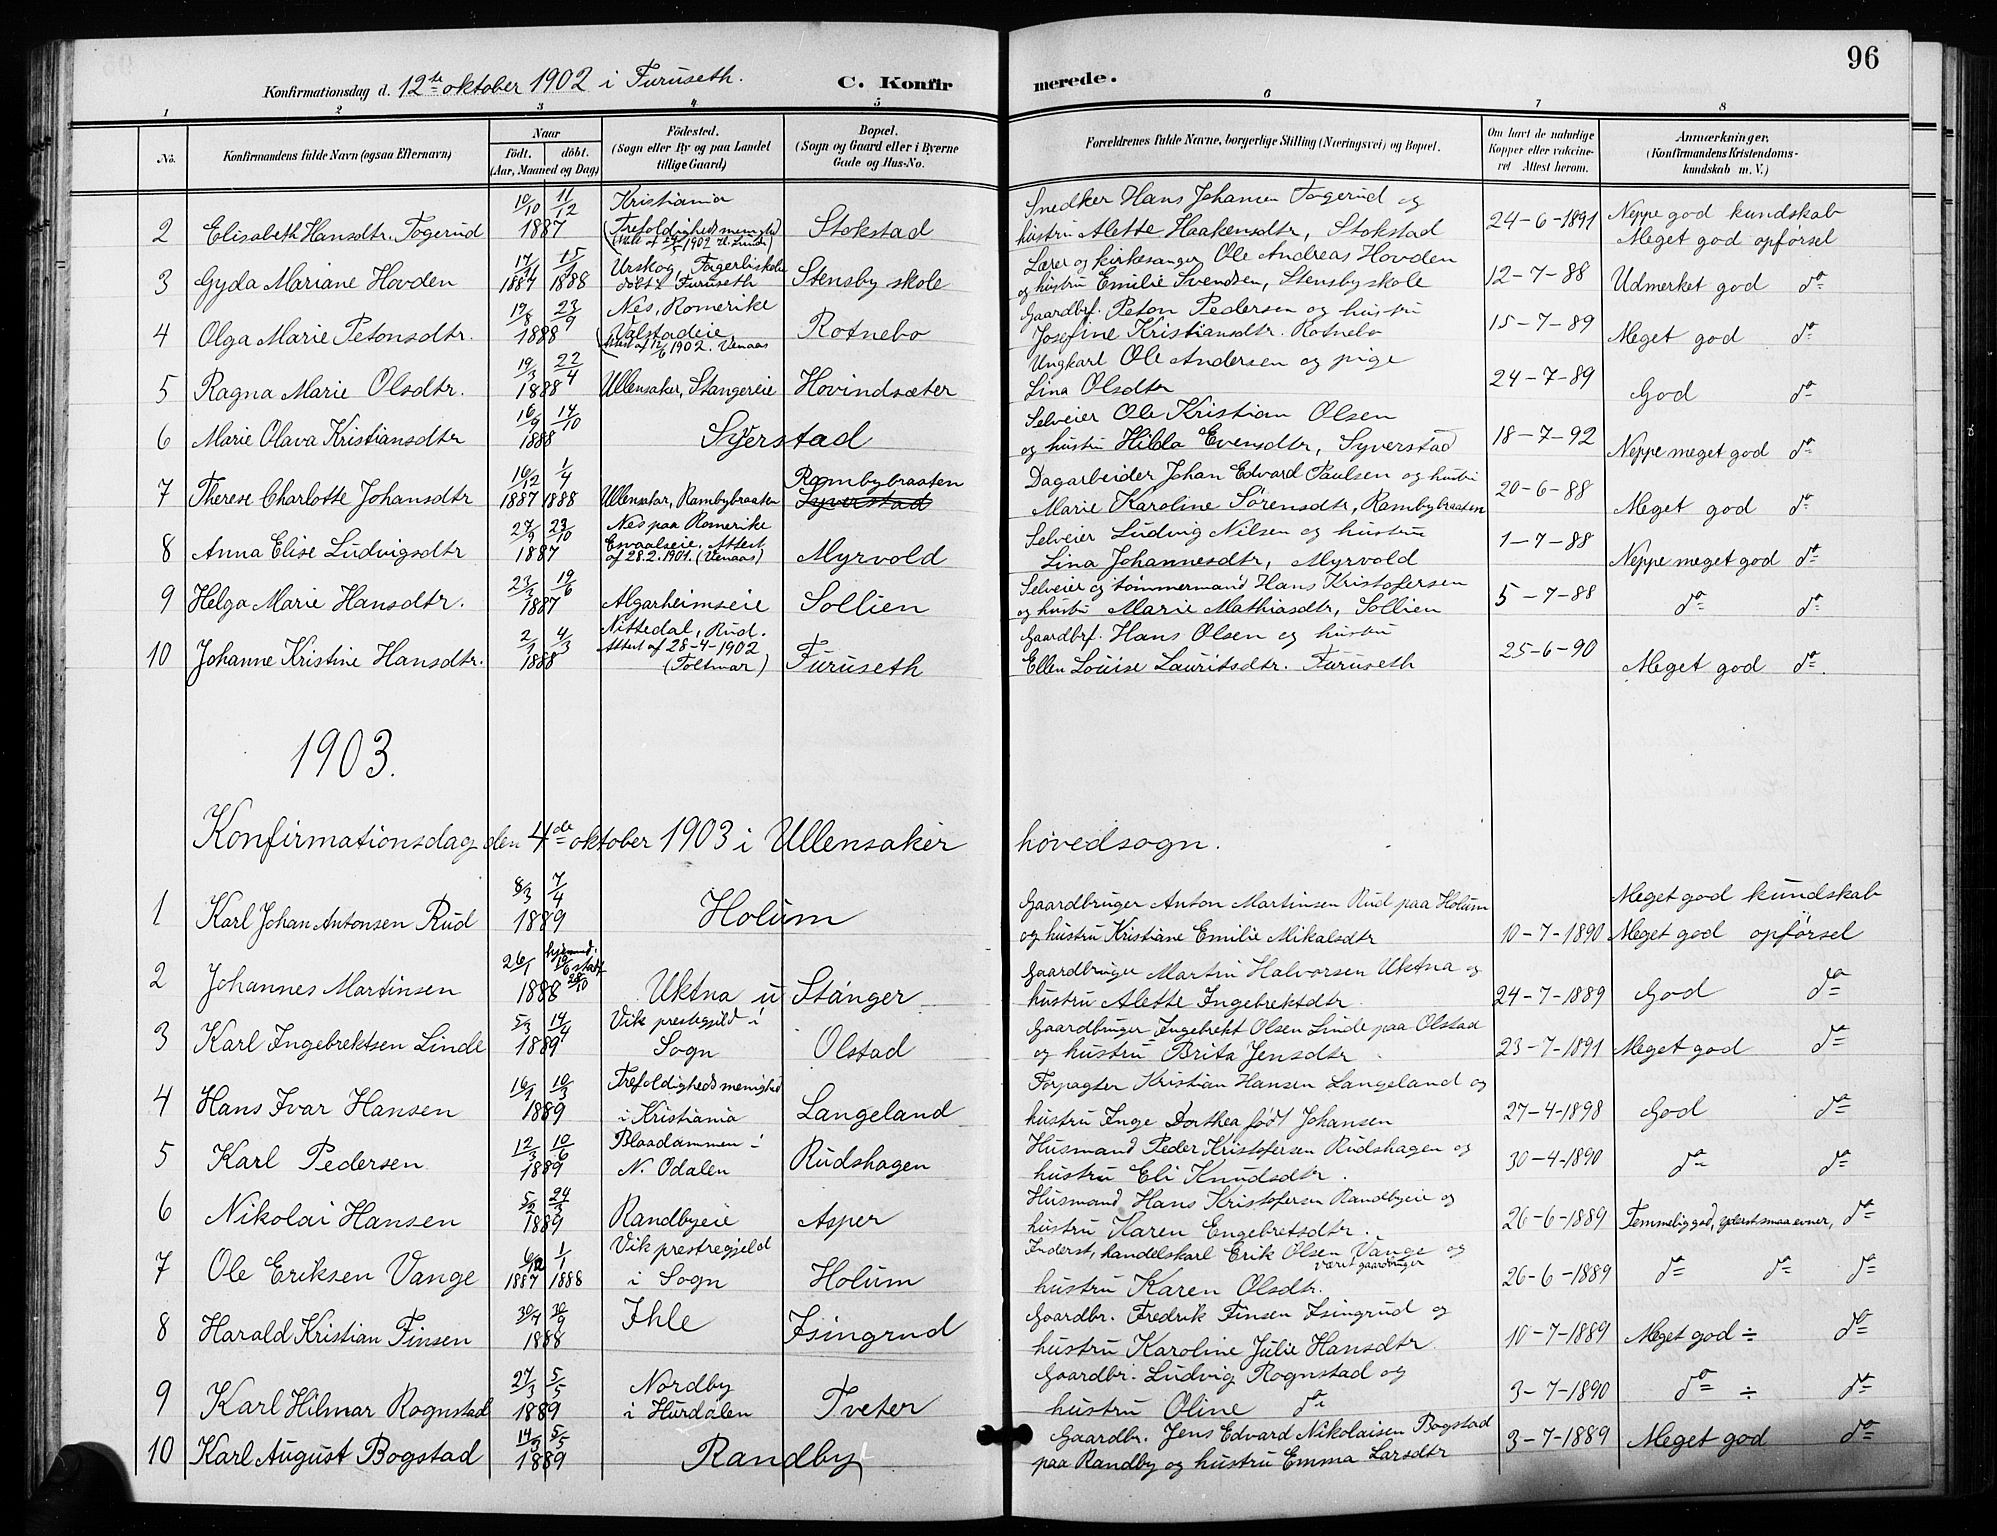 96
Konfirmationsdag d. 12te oktober 1902 i Furuseth. C. Konfirmerede.
1 2 3 4 5 6 7 8
No. Konfirmandens fulde Navn (ogsaa Efternavn) Naar Födt. döbt. (Aar, Maaned og Dag) Födested. (Sogn eller By og paa Landet tillige Gaard) Bopæl. (Sogn og Gaard eller i Byerne Gade og Hus-No. Forældrenes fulde Navne, borgerlige Stilling (Næringsvei) og Bopæl. Om havt de naturlige Kopper eller vaccineret Attest herom. Anmærkninger, (Konfirmandens Kristendomskundskab m. V.)
10/10 11/12 Kristiania Snedker Hans Johansen Togerud og
2 Elisabeth Hansdtr. Togerud 1887 Trefoldighedsmenighed Stokstad hustru Alette Haakensdtr, Stokstad 24-6-1891 Neppe god kundskab Meget god opførsel
3 Gyda Mariane Hovden 17/11 1887 15/1 1888 Urskog, Fagerliskole døbt i Furuseth Stensby skole Lærer og kirkesanger Ole Andreas Hovden og hustru Emilie Svendsen, Stensby skole 12-7-88 Udmerket god do
4 Olga Marie Petonsdtr. 19/8 23/9 1888 Nes, Romerike Valstadeie (Attest af 12/6 1902. Venaas Rotnebo Gaardbr. Peton Pedersen og hustru Josefine Kristiansdtr. Rotnebo 15-7-89 Meget god do
5 Ragna Marie Olsdtr. 19/3 22/4 1888 Ullensaker, Stangereie Hovindsæter Ungkarl Ole Andersen og pige Lina Olsdtr 24-7-89 God do
6 Marie Olava Kristiansdtr 16/9 14/10 1888 Syverstad Selveier Ole Kristian Olsen og hustru Hilda Evensdtr, Syverstad 18-7-92 Neppe meget god do
7 Therese Charlotte Johansdtr 16/12 1887 1/4 1888 Ullensaker, Rambybraaten Rambybraaten Syverstad Dagarbeider Johan Edvard Paulsen og hustru Marie Karoline Sørensdtr, Rambybraaten 20-6-88 Meget god do
8 Anna Elise Ludvigsdtr 27/9 23/10 1887 Nes paa Romerike Esvaalseie, Attest af 28.2.1901. (Venaas) Myrvold Selveier Ludvig Nilsen og hustru Lina Johannesdtr, Myrvold 1-7-88 Neppe meget god do
9 Helga Marie Hansdtr. 23/3 19/6 1887 Algarheimseie Sollien Selveier og tømmermand Hans Kristofersen og hustru Marie Mathiasdtr, Sollien 5-7-88 do do
10 Johanne Kristine Hansdtr. 2/1 4/3 1888 Nittedal, Rud. Attest af 28-4-1902 Furuseth Gaardbr. Hans Olsen og hustru Ellen Louise Lauritsdtr. Furuseth 25-6-90 Meget god do.
1903.
Konfirmationsdag den 4de oktober 1903 i Ullensaker hovedsogn.
1 Karl Johan Antonsen Rud 8/3 7/4 1889 Holum Gaardbruger Anton Martinsen Rud paa Holum og hustru Kristiane Emilie Mikalsdtr 10-7-1890 Meget god kundskab Meget god opførsel
2 Johannes Martinsen 26/1 1888 28/10 Uktna u Stanger Gaardbruger Martin Halvorsen Uktna og hustru Alette Ingebrektsdtr. 24-7-1889 God do
3 Karl Ingebrektsen Linde 5/3 14/4 1889 Vik prestegjeld i Sogn Olstad Gaardbruger Ingebrekt Olsen Linde paa Olstad og hustru Brita Jensdtr 23-7-1891 Meget god do
4 Hans Ivar Hansen 16/1 10/3 1889 Trefoldighedsmenighed i Kristiania Langeland Forpagter Kristian Hansen Langeland og hustru Inge Dorthea født Johansen 27-4-1898 God do
5 Karl Pedersen 12/3 10/6 1889 Blaadammen i N. Odalen Rudshagen Husmand Peder Kristofersen Rudshagen og hustru Eli Knudsdtr. 30-4-1890 do do
6 Nikolai Hansen 5/2 24/3 1889 Randbyeie Asper Husmand Hans Kristofersen Randbyeie og hustru Karen Engebretsdtr. 26-6-1889 Temmelig god, smaa evner, do
7 Ole Eriksen Vange 6/12 1887 1/1 1888 Vik prestegjeld i Sogn Holum Inderst, handelskarl Erik Olsen Vange og været gaardbruger hustru Karen Olsdtr. 26-6-1889 do do do
8 Harald Kristian Finsen 30/4 30/9 1888 Ihle Isingrud Gaardbr. Fredrik Finsen Isingrud og hustru Karoline Julie Hansdtr 10-7-1889 Meget god ÷ do
9 Karl Hilmar Rognstad 27/3 5/5 1889 Nordby i Hurdalen Tveter Gaardbr. Ludvig Rognstad og hustru Oline do 3-7-1890 do ÷ do
10 Karl August Bogstad 14/3 5/5 1889 Randby Gaardbr. Jens Edvard Nikolaisen Bogstad paa Randby og hustru Emma Larsdtr 3-7-1889 Meget god do